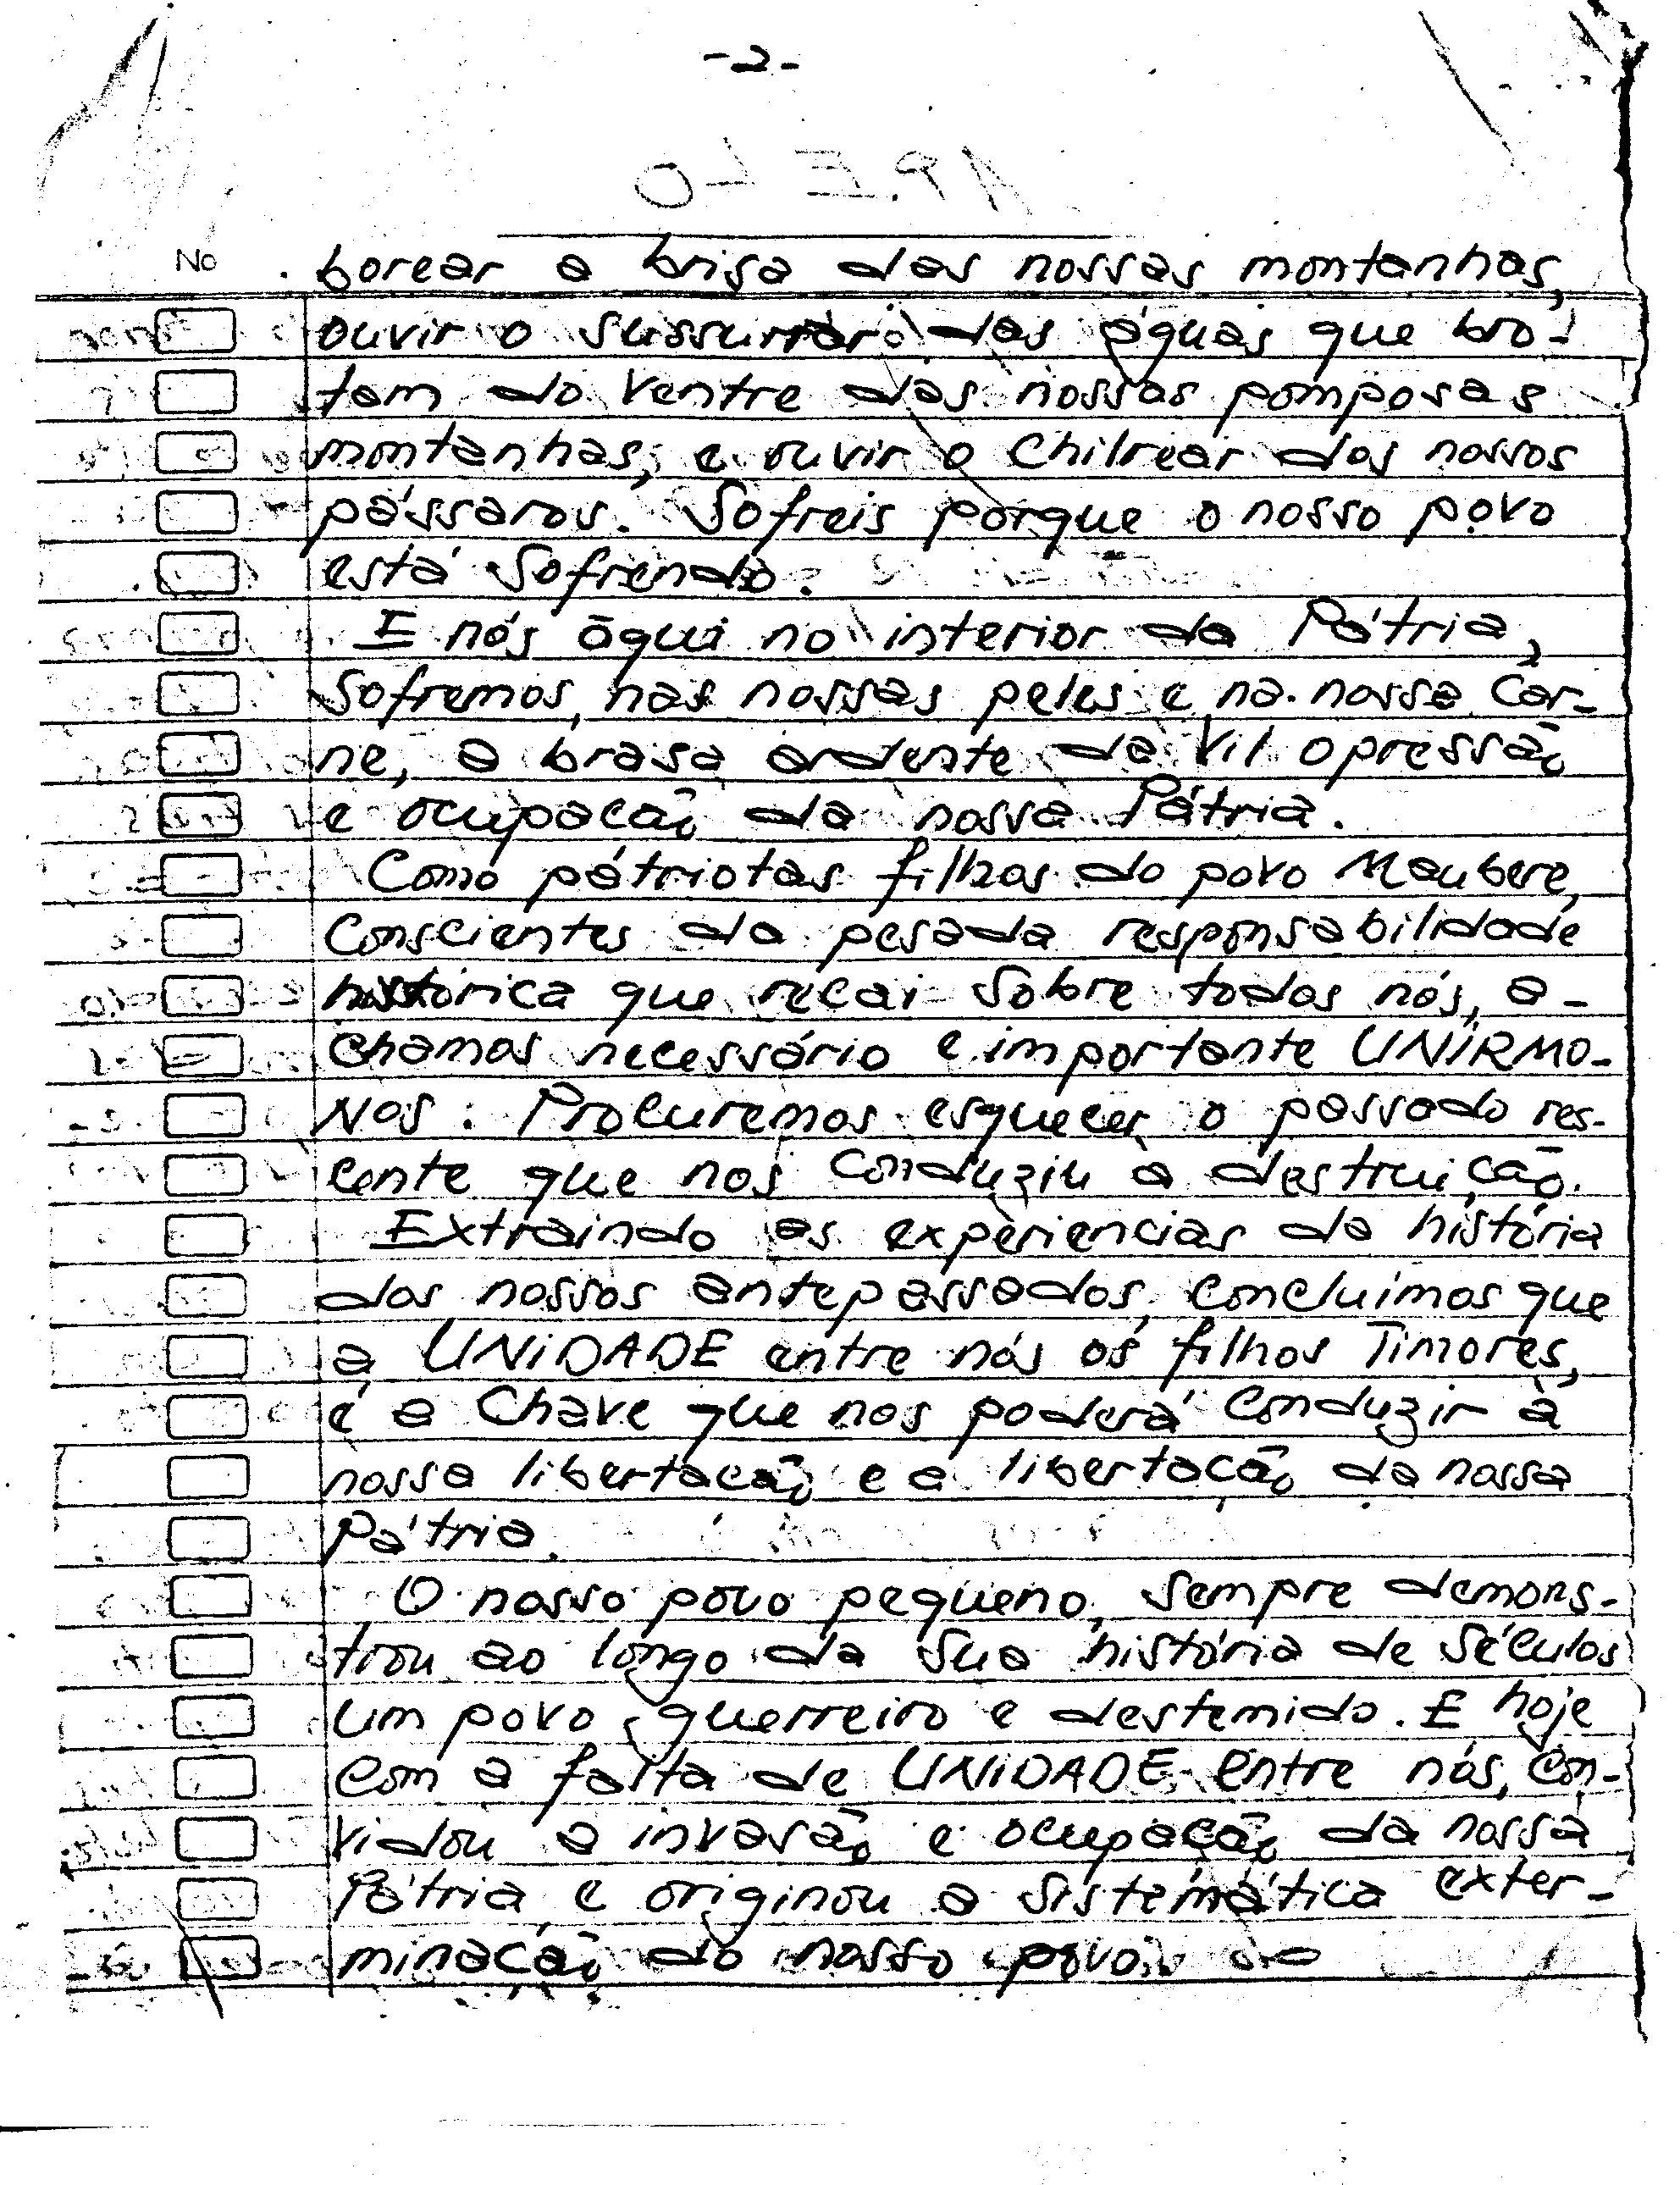 -2-
APELO
No
borear a brisa das nossas montanhas,
ouvir o sussurrar das águas que bro-
tam do ventre das nossas pomposas
montanhas, e ouvir o chilrear dos nossos
pássaros. Sofreis porque o nosso povo
está sofrendo.
E nós āqui no interior da Pátria,
sofremos, nas nossas peles e na nossa car-
ne, a brasa ardente da vil opressão
e ocupacão da nossa Pátria.
Como pátriotas filhos do povo Maubere,
conscientes da pesada responsabilidade
histórica que recai sobre todos nós, a-
chamos necessário e importante UNIRMO-
NOS. Procuremos esquecer o passado res-
cente que nos conduziu à destruição.
Extraindo as experiencias da história
dos nossos antepassados, concluimos que
a UNiDADE entre nós os filhos Timores,
é a chave que nos poderá conduzir à
nossa libertacão e a libertacão da nossa
Pátria.
O nosso povo pequeno, sempre demons-
trou ao longo da sua história de séculos
um povo guerreiro e destemido. E hoje
com a falta de UNiDADE entre nós, con-
vidou a invasão e ocupação da nossa
Pátria, e originou a sistemática exter-
minação do nosso povo.